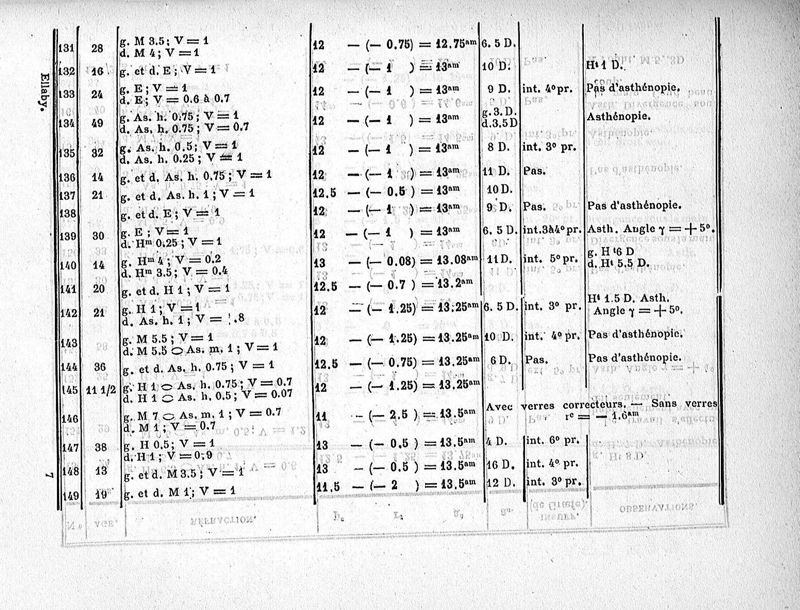 131 28 g. M 3.5; V = 1 12 — (— 0.75) = 12.75am 6.5 D.
d. M 4; V = 1
132 16 g. et d. E; V = 1 12 — (— 1 ) = 13am 10 D. Ht 1 D.
133 24 g. E; V = 1 12 — (— 1 ) = 13am 9 D. int. 4o pr. Pas d'asthénopie.
d. E; V = 0.6 à 0.7
134 49 g. As. h. 0.75; V = 1 12 — (— 1 ) = 13am g. 3. D. Asthénopie.
d. As. h. 0.75; V = 0.7 d. 3.5 D
135 32 g. As. h. 0.5; V = 1 12 — (— 1 ) = 13am 8 D. int. 3o pr.
d. As. h. 0.25; V = 1
136 14 g. et d. As. h. 0.75; V = 1 12 — (— 1 ) = 13am 11 D. Pas.
137 21 g. et d. As. h. 1; V = 1 12.5 — (— 0.5 ) = 13am 10 D.
138 g. et d. E; V = 1 12 — (— 1 ) = 13am 9 D. Pas. Pas d'asthénopie.
139 30 g. E; V = 1 12 — (— 1 ) = 13am 6.5 D. int. 3 à 4o pr. Asth. Angle γ = + 5o.
d. Hm 0.25; V = 1
140 14 g. Hm 4; V = 0.2 13 — (— 0.08) = 13.08am 11 D. int. 5o pr. g. Ht 6 D
d. Hm 3.5; V = 0.4 d. Ht 5.5 D.
141 20 g. et d. H 1; V = 1 12.5 — (— 0.7 ) = 13.2am
142 21 g. H 1; V = 1 12 — (— 1.25) = 13.25am 6.5 D. int. 3o pr. Ht 1.5 D. Asth.
d. As. h. 1; V = .8 Angle γ = + 5o.
143 g. M 5.5; V = 1 12 — (— 1.25) = 13.25am 10 D. int. 4o pr. Pas d'asthénopie.
d. M 5.5 ⊂⊃ As. m. 1; V = 1
144 36 g. et d. As. h. 0.75; V = 1 12.5 — (— 0.75) = 13.25am 6 D. Pas. Pas d'asthénopie.
145 11 1/2 g. H 1 ⊂⊃ As. h. 0.75; V = 0.7 12 — (— 1.25) = 13.25am
d. H 1 ⊂⊃ As. h. 0,5; V = 0.07
146 g. M 7 ⊂⊃ As. m. 1; V = 0.7 11 — (— 2,5 ) = 13.5am Avec verres correcteurs. — Sans verres
d. M 1; V = 0.7 rc = — 1.6am
147 38 g. H 0.5; V = 1 13 — (— 0.5 ) = 13.5am 4 D. int. 6o pr.
d. H 1; V = 0.9
148 13 g. et d. M 3.5; V = 1 13 — (— 0.5 ) = 13.5am 16 D. int. 4o pr.
149 19 g. et d. M 1; V = 1 11.5 — (— 2 ) = 13.5am 12 D. int. 3o pr.
Ellaby.
7